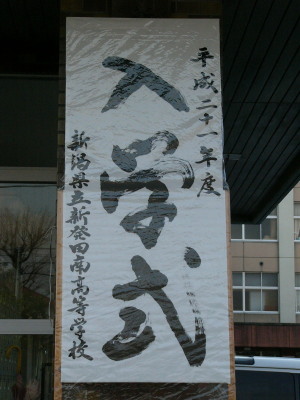 平成二十一年度
入学式
新潟県立新発田南高等学校